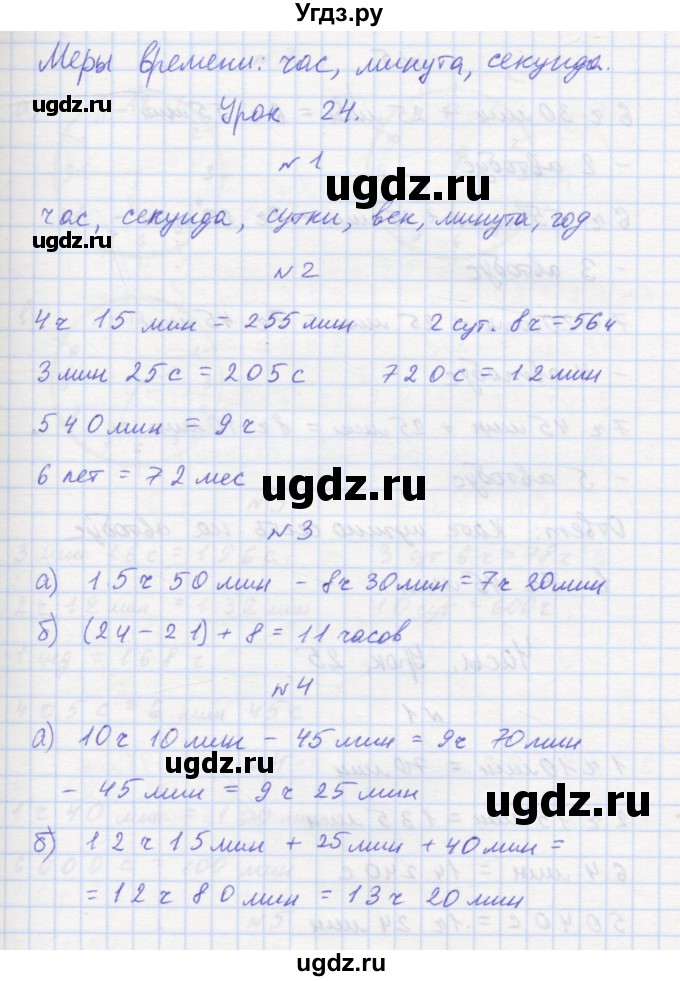 Угдз.ру
Меры времени: час, минута, секунда.
ugdz.ru
Урок = 24.
ugdz.ru
№1
ugdz.ru
час, секунда, сутки, век, минута, год
ugdz.ru
№2
4ч 15 мин = 255 мин 2 сут. 8ч = 56ч
3 мин 25 с = 205 с 720 с = 12 мин
540 мин = 9 ч
6 лет = 72 мес
ugdz.ru
№3
ugdz.ru
а) 15ч 50 мин - 8ч 30 мин = 7ч 20 мин
б) (24 - 21) + 8 = 11 часов
№4
а) 10ч 10 мин - 45 мин = 9ч 70 мин
ugdz.ru
- 45 мин = 9 ч 25 мин
ugdz.ru
б) 12 ч 15 мин + 25 мин + 40 мин =
= 12 ч 80 мин = 13 ч 20 мин
ugdz.ru